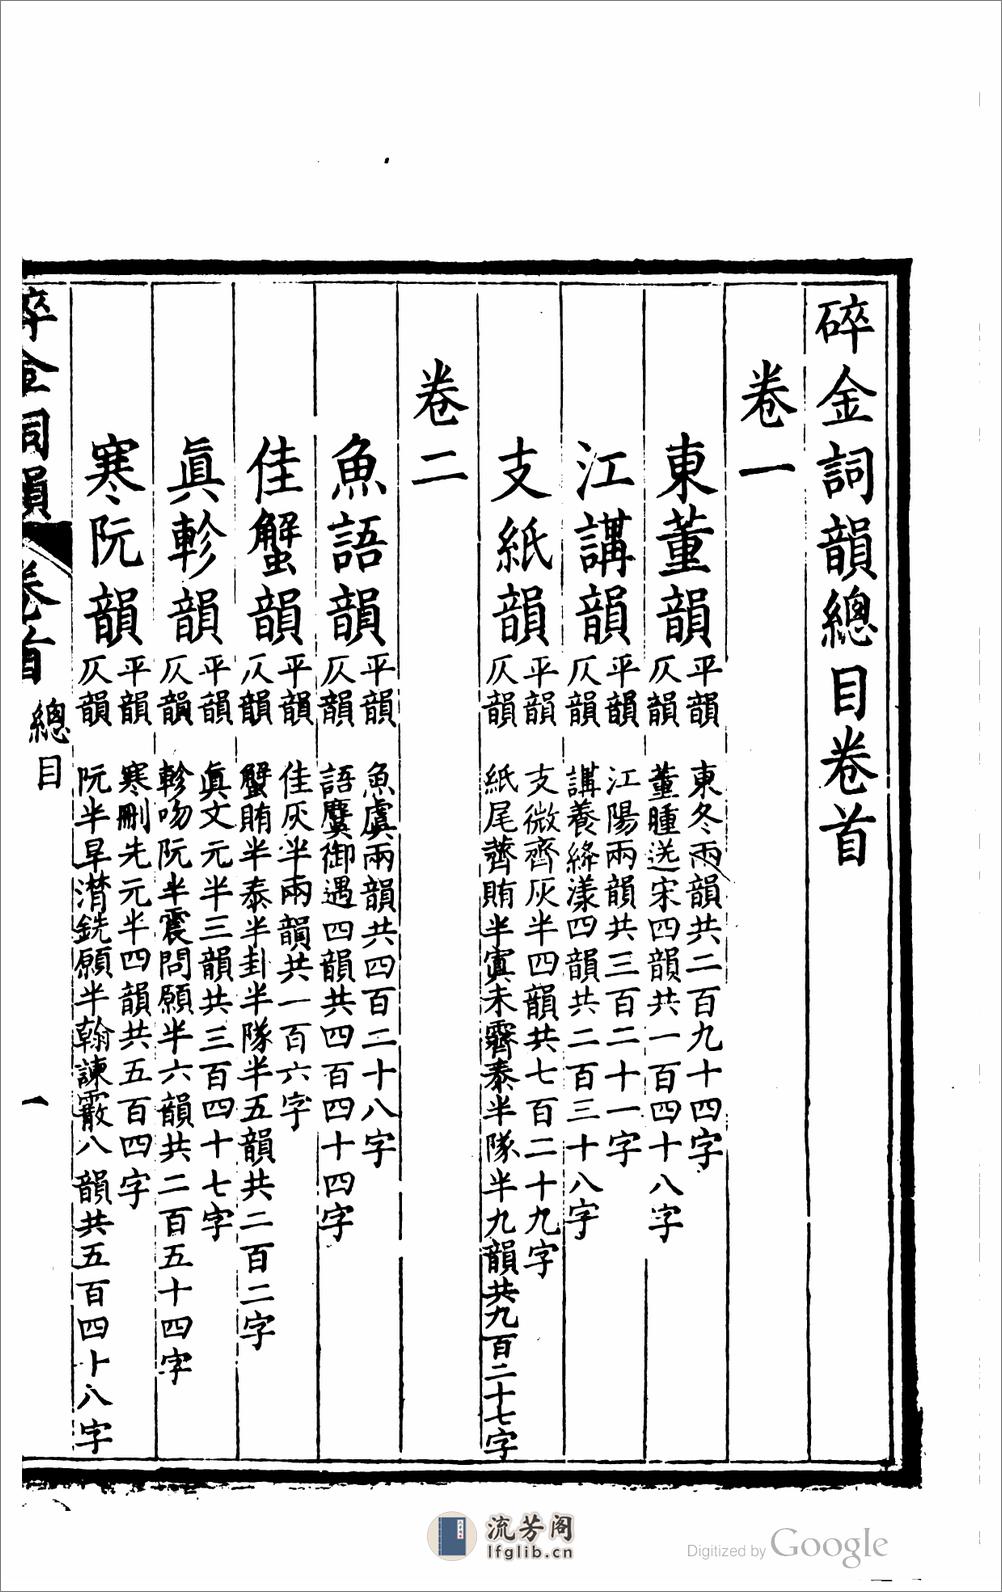 碎金詞韻總目卷首
卷一
東董韻
平韻
仄韻
東冬兩韻共二百九十四字
董腫送宋四韻共一百四十八字
江講韻
平韻
仄韻
江陽兩韻共三百二十一字
講養絳漾四韻共二百三十八字
支紙韻
平韻
仄韻
支微齊灰半四韻共七百二十九字
紙尾薺賄半寘未霽泰半隊半九韻共九百二十七字
卷二
魚語韻
平韻
仄韻
魚虞兩韻共四百二十八字
語麌御遇四韻共四百四十四字
佳蟹韻
平韻
仄韻
佳灰半兩韻共一百六字
蟹賄半泰半卦半隊半五韻共二百二字
眞軫韻
平韻
仄韻
眞文元半三韻共三百四十七字
軫吻阮半震問願半六韻共二百五十四字
寒阮韻
平韻
仄韻
寒刪先元半四韻共五百四字
阮半旱潸銑願半翰諫霰八韻共五百四十八字
碎金詞韻
卷首
總目
一
流芳阁
lfglib.cn
Digitized by Google